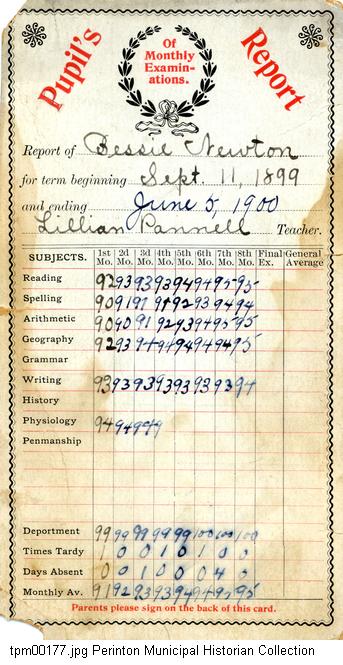 Pupil's Report
Of
Monthly
Examin-
ations.
Report of Bessie Newton
for term beginning Sept. 11, 1899
and ending June 5, 1900
Lillian Pannell Teacher.
SUBJECTS. 1st Mo. 2d Mo. 3d Mo. 4th Mo. 5th Mo. 6th Mo. 7th Mo. 8th Mo. Final Ex. General Average
Reading 92 93 93 93 94 94 95 95
Spelling 90 91 91 91 92 93 94 94
Arithmetic 90 90 91 92 93 94 95 95
Geography 92 93 94 94 94 94 94 95
Grammar
Writing 93 93 93 93 93 93 93 94
History
Physiology 94 94
Penmanship
Deportment 99 99 99 99 99 100 100 100
Times Tardy 1 0 0 1 0 1 0 0
Days Absent 0 0 1 0 0 0 4 0
Monthly Av. 91 92 93 93 94 94 95 95
Parents please sign on the back of this card.
tpm00177.jpg Perinton Municipal Historian Collection